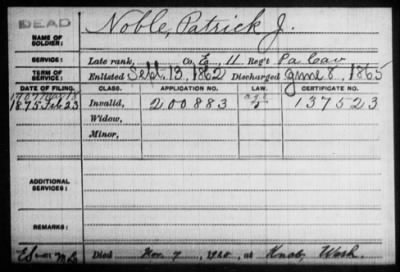 DEAD
NAME OF SOLDIER: Noble, Patrick J.
SERVICE: Late rank, Co. E, 11 Reg't Pa Cav
TERM OF SERVICE: Enlisted Sept. 13, 1862 Discharged June 8, 1865
DATE OF FILING. CLASS. APPLICATION NO. LAW. CERTIFICATE NO.
1875 Feb 23 Invalid, 200883 137523
Widow,
Minor,
ADDITIONAL SERVICES:
REMARKS:
Died Nov. 7, 1920, at Wash.